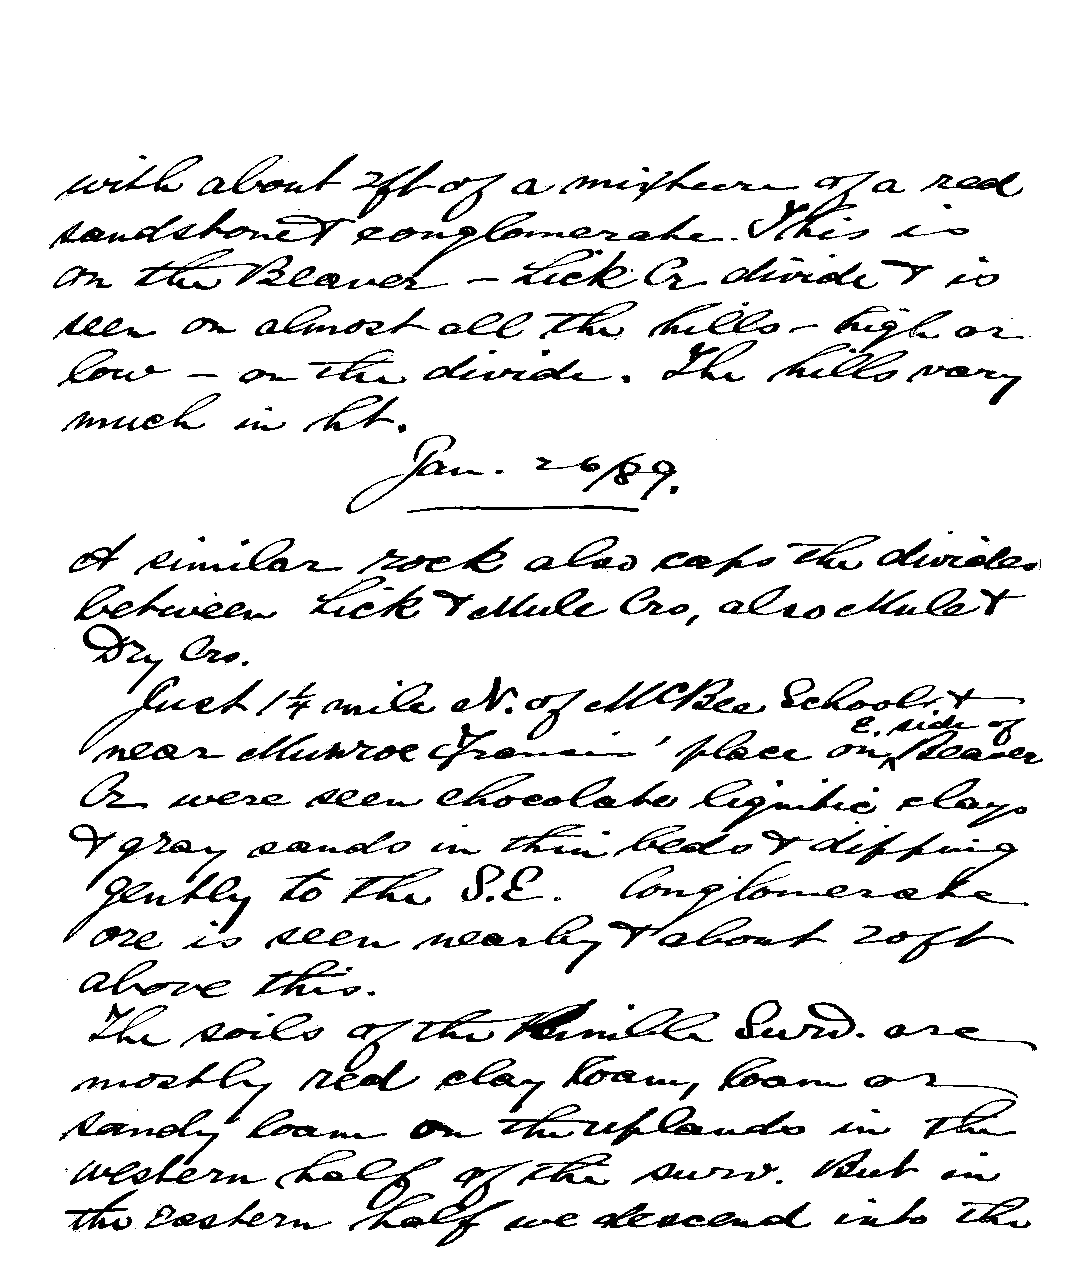 with about 2ft of a mixture of a red
sandstone & conglomerate. This is
on the Beaver - Lick Cr divide & is
seen on almost all the hills - high or
low - on the divide. The hills vary
much in ht.
Jan. 26/89.
A similar rock also caps the divides
between Lick & Mule Crs, also Mule &
Dry Crs.
Just 1¼ mile N. of McBee School, &
near Munroe place on E. side of Beaver
Cr were seen chocolate lignitic clays
& gray sands in thin beds & dipping
gently to the S.E. Conglomerate
ore is seen nearby & about 20ft
above this.
The soils of the Surv. are
mostly red clay loam, loam or
sandy loam on the uplands in the
western half of the surv. But in
the eastern half we descend into the